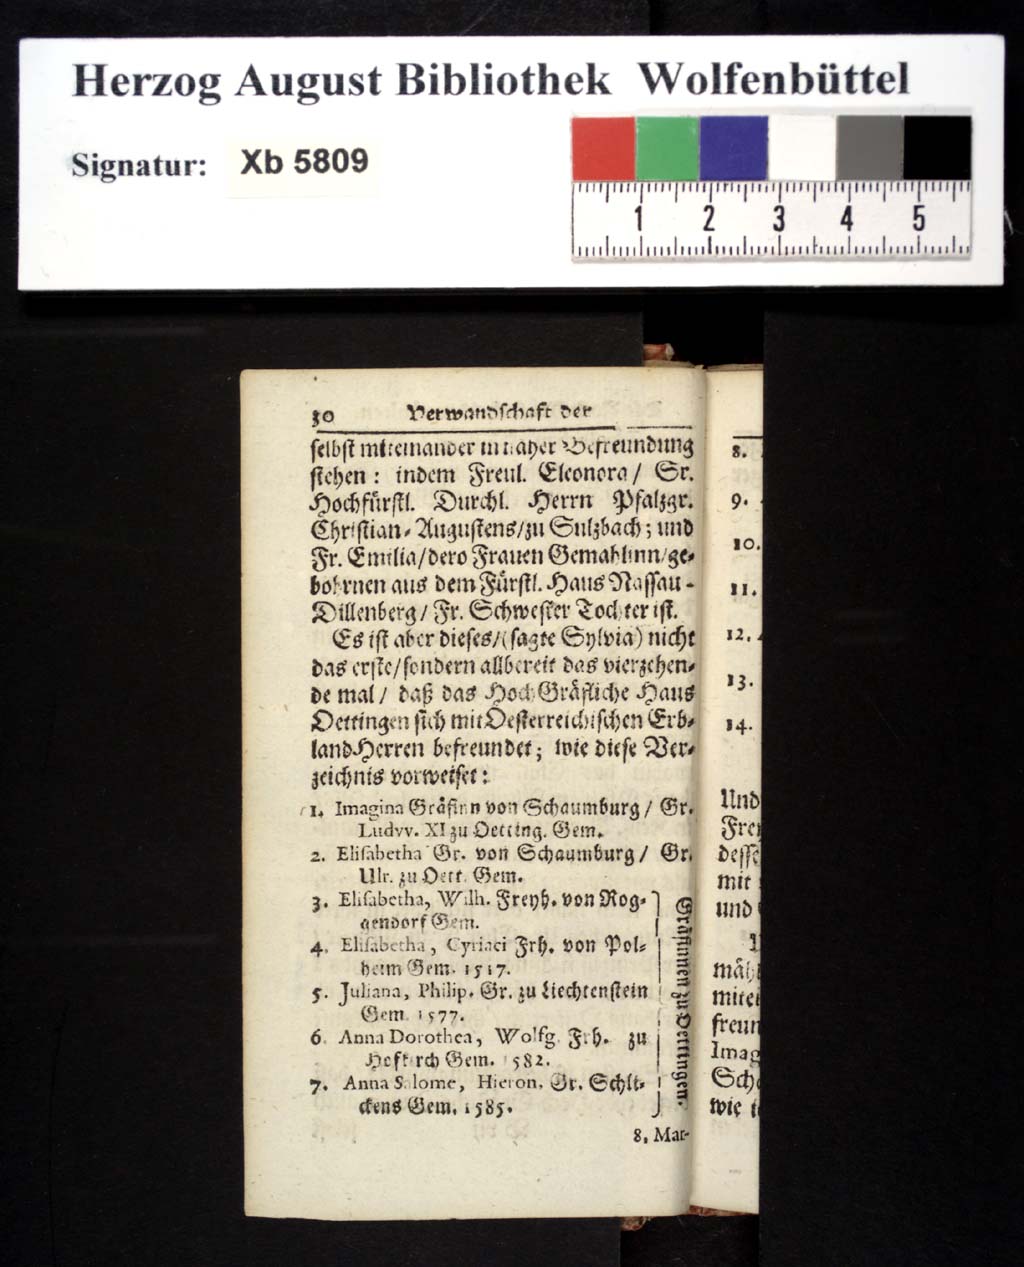 Herzog August Bibliothek Wolfenbüttel
Signatur: Xb 5809
1 2 3 4 5
30 Verwandschaft der
selbst miteinander in naher Befreundung
stehen: indem Freul. Eleonora/ Sr.
Hochfürstl. Durchl. Herrn Pfalzgr.
Christian-Augustens/zu Sulzbach; und
Fr. Emilia/dero Frauen Gemahlinn/ge-
bohrnen aus dem Fürstl. Haus Nassau-
Dillenberg/ Fr. Schwester Tochter ist.
Es ist aber dieses/(sagte Sylvia) nicht
das erste/sondern allbereit das vierzehen-
de mal/ daß das HochGräfliche Haus
Oettingen sich mit Oesterreichischen Erb-
landHerren befreundet; wie diese Ver-
zeichnis vorweiset:
1. Imagina Gräfinn von Schaumburg/ Gr.
Ludvv. XI zu Oetting. Gem.
2. Elisabetha Gr. von Schaumburg/ Gr.
Ulr. zu Oett. Gem.
3. Elisabetha, Wilh. Freyh. von Rog-
gendorf Gem.
4. Elisabetha, Cyriaci Frh. von Pol-
heim Gem. 1517.
5. Juliana, Philip. Gr. zu Liechtenstein
Gem. 1577.
6. Anna Dorothea, Wolfg. Frh. zu
Hofkirch Gem. 1582.
7. Anna Salome, Hieron. Gr. Schli-
ckens Gem. 1585.
Gräfinnen zu Oettingen.
8. Mar-
8.
9.
10.
11.
12.
13.
14.
Und
desse
mit
und
mitei
freun
Imag
wie